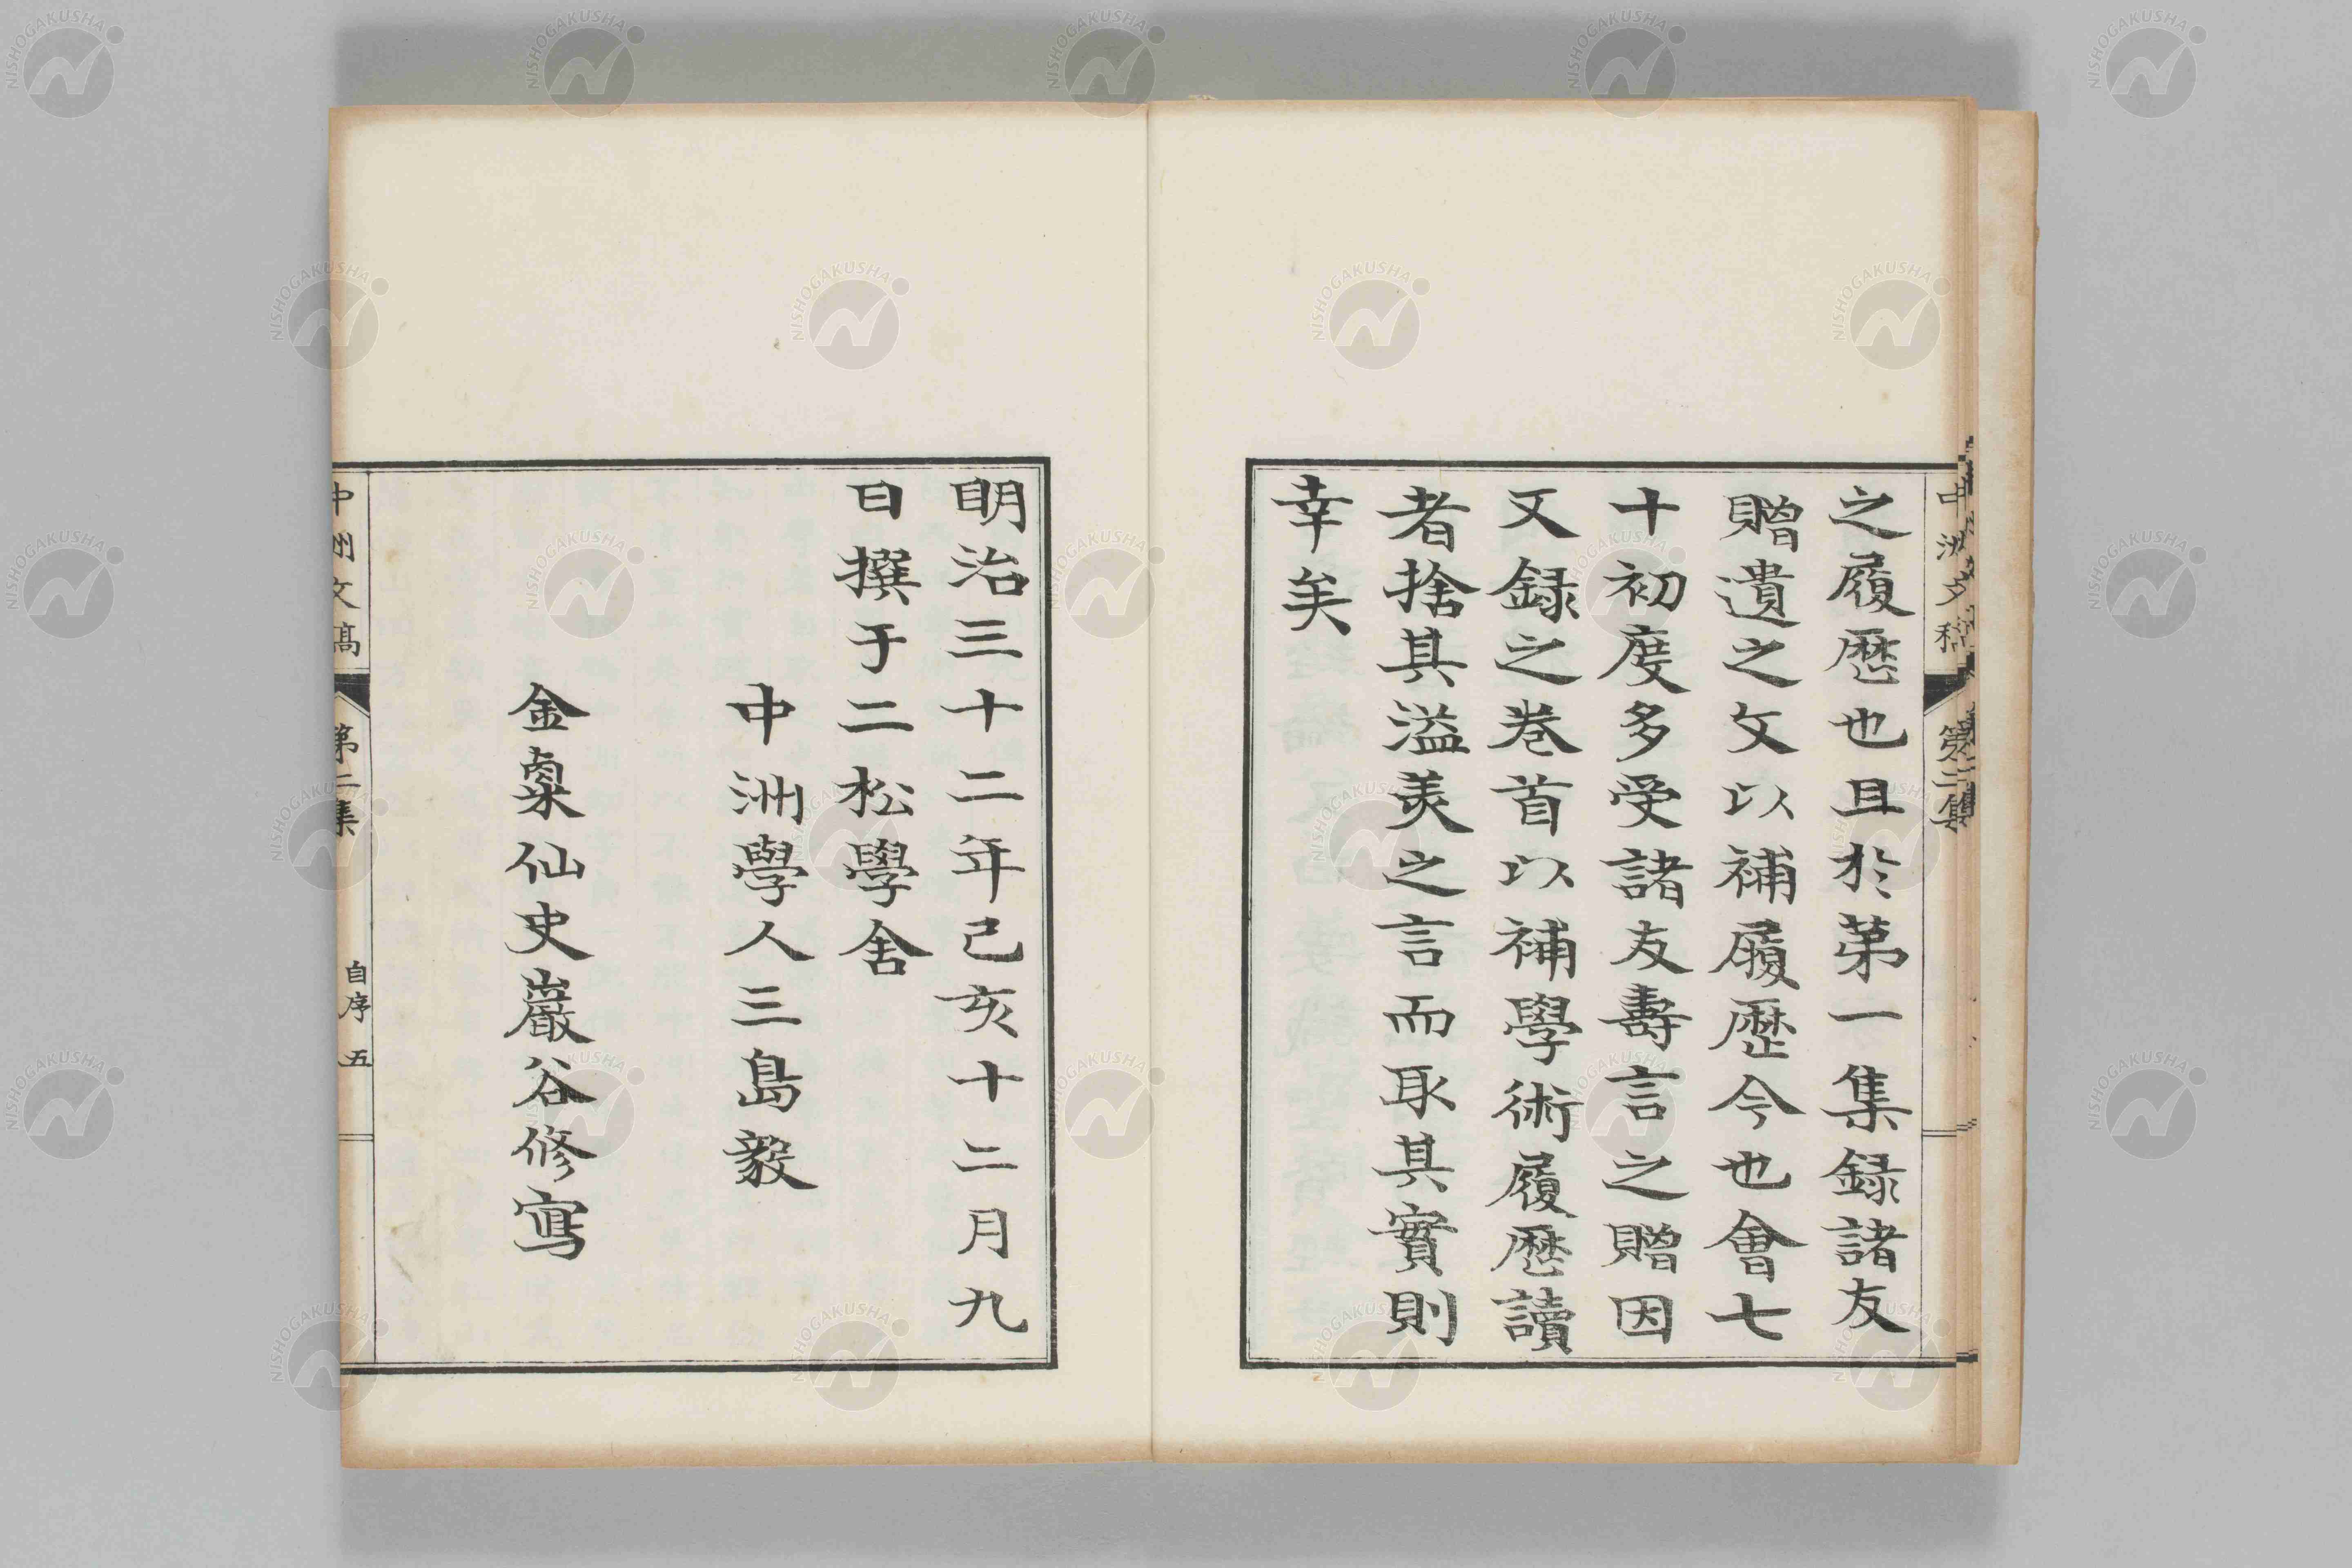 之履歴也且於第一集録諸友
贈遺之文以補履歴今也會七
十初度多受諸友壽言之贈因
又録之巻首以補學術履歴讀
者捨其溢美之言而取其實則
幸矣
中洲文稿 第二集
明治三十二年己亥十二月九
日撰于二松學舍
中洲學人三島毅
金粟仙史巖谷修寫
中洲文稿 第二集 自序 五
NISHOGAKUSHA